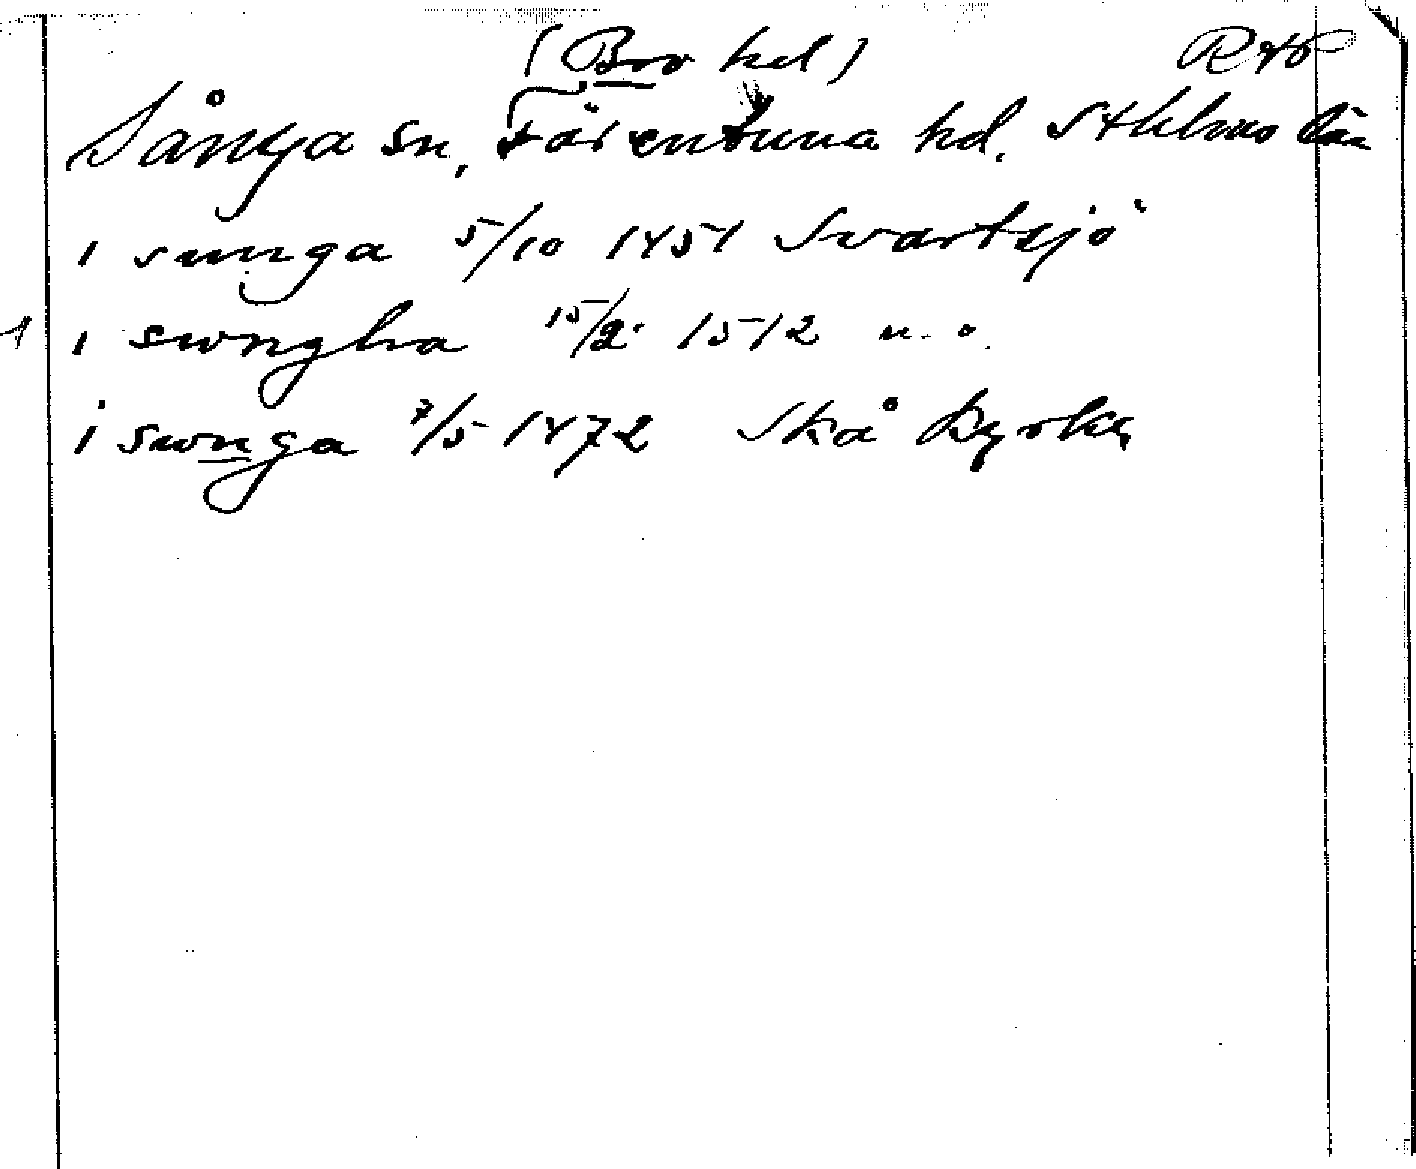 (Bro hd) RAP
Sånga sn, Färentuna hd. Sthlms län
i sunga 5/10 1451 Svartsjö
1 i swngha 15/2 1512 u. o.
i swnga 7/5 1472 Skå kyrka